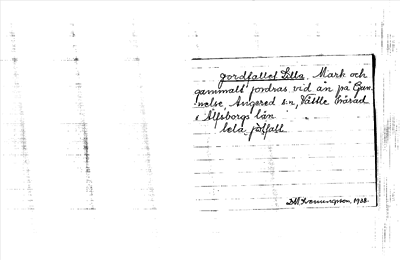 Jordfallet Lilla. Mark och
gammalt jordras vid ån på Gun-
nelse, Angered s:n, Vättle härad
i Älfsborgs län.
lela jolfalt
1938.